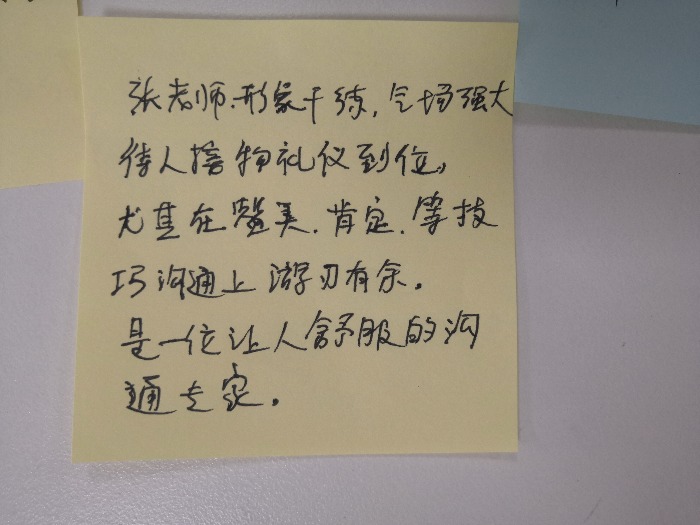 张老师.形象干练,气场强大
待人接物礼仪到位,
尤其在赞美.肯定.等技
巧沟通上游刃有余.
是一位让人舒服的沟
通专家.